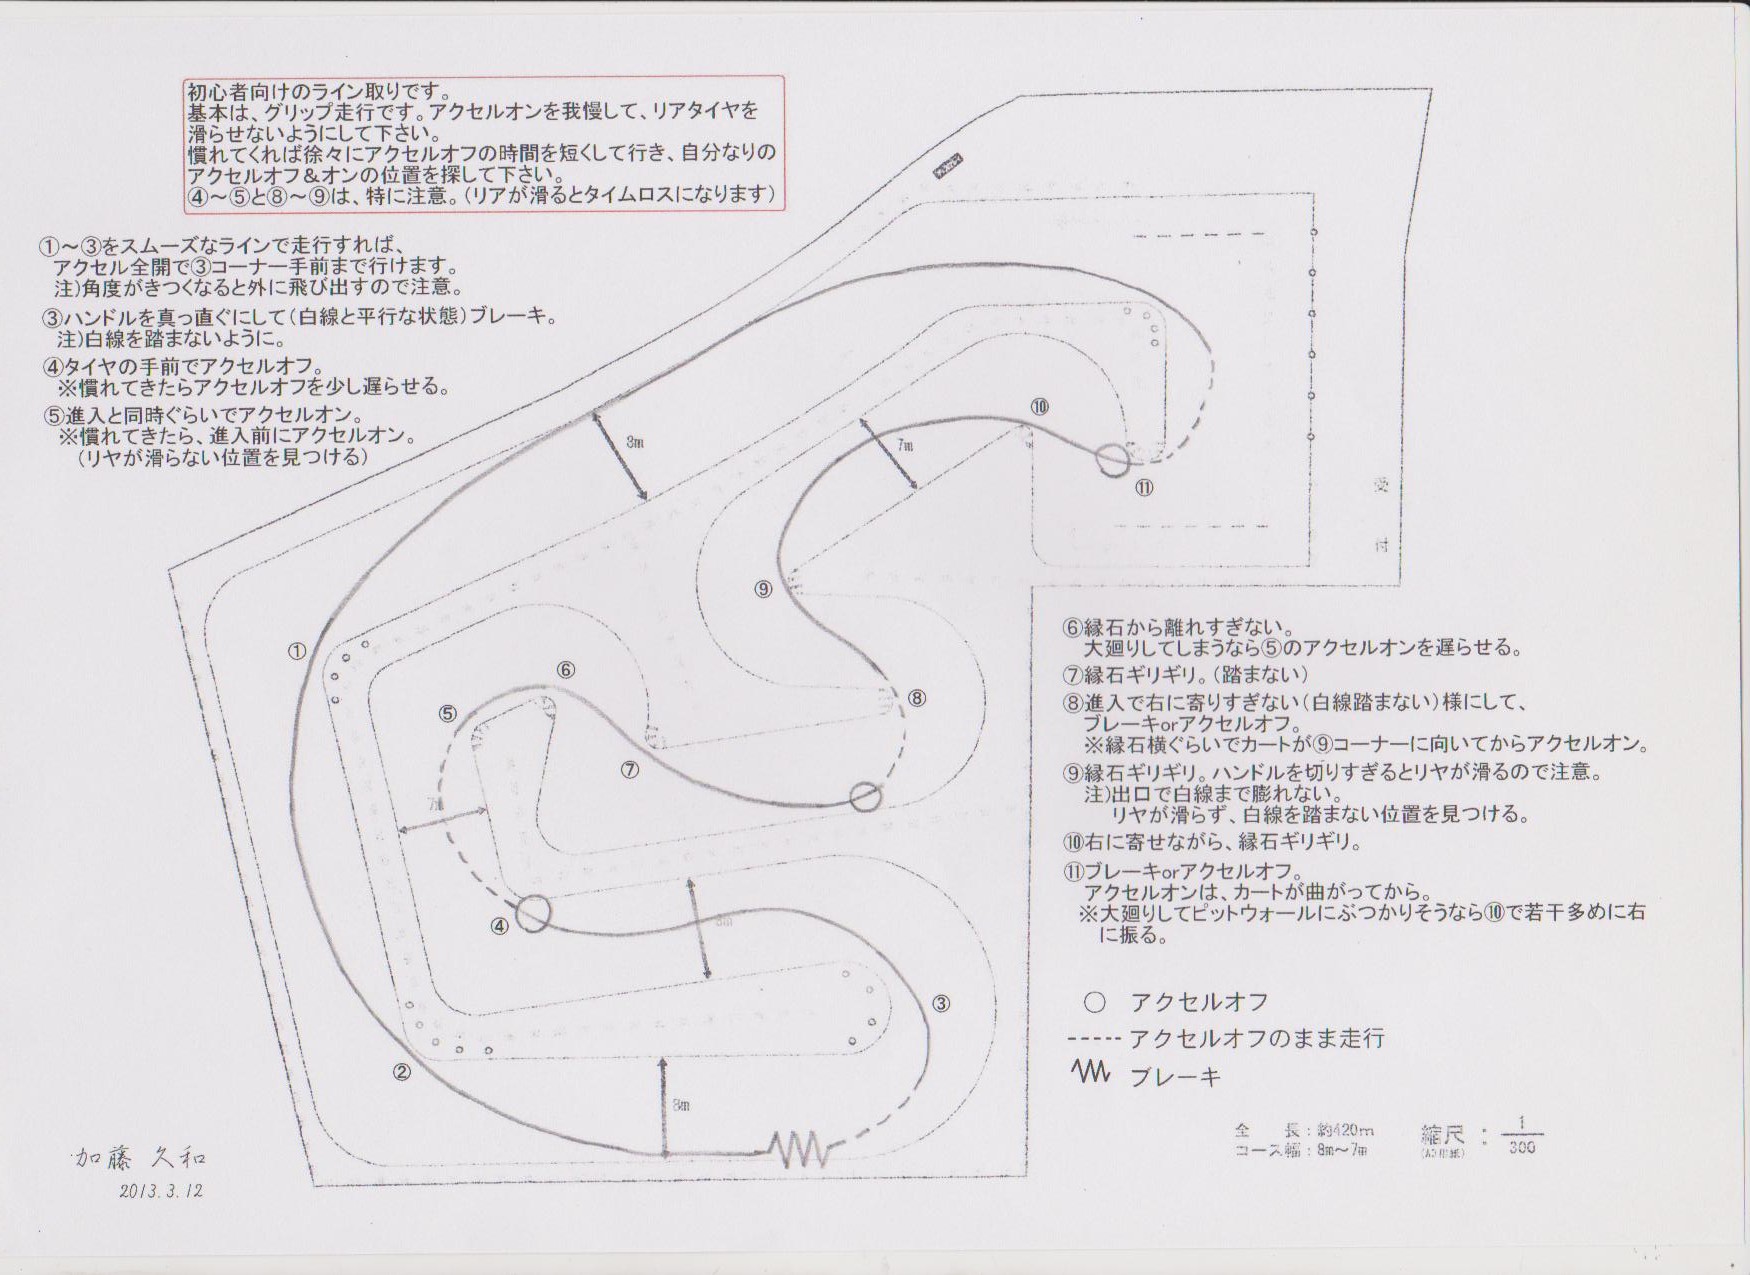 初心者向けのライン取りです。
基本は、グリップ走行です。アクセルオンを我慢して、リアタイヤを
滑らせないようにして下さい。
慣れてくれば徐々にアクセルオフの時間を短くして行き、自分なりの
アクセルオフ&オンの位置を探して下さい。
④～⑤と⑧～⑨は、特に注意。(リアが滑るとタイムロスになります)
①～③をスムーズなラインで走行すれば、
アクセル全開で③コーナー手前まで行けます。
注)角度がきつくなると外に飛び出すので注意。
③ハンドルを真っ直ぐにして(白線と平行な状態)ブレーキ。
注)白線を踏まないように。
④タイヤの手前でアクセルオフ。
※慣れてきたらアクセルオフを少し遅らせる。
⑤進入と同時ぐらいでアクセルオン。
※慣れてきたら、進入前にアクセルオン。
(リヤが滑らない位置を見つける)
8m
7m
⑩
⑪
受付
⑨
①
⑥
⑤
⑧
⑦
7m
④
8m
③
②
8m
⑥縁石から離れすぎない。
大廻りしてしまうなら⑤のアクセルオンを遅らせる。
⑦縁石ギリギリ。(踏まない)
⑧進入で右に寄りすぎない(白線踏まない)様にして、
ブレーキorアクセルオフ。
※縁石横ぐらいでカートが⑨コーナーに向いてからアクセルオン。
⑨縁石ギリギリ。ハンドルを切りすぎるとリヤが滑るので注意。
注)出口で白線まで膨れない。
リヤが滑らず、白線を踏まない位置を見つける。
⑩右に寄せながら、縁石ギリギリ。
⑪ブレーキorアクセルオフ。
アクセルオンは、カートが曲がってから。
※大廻りしてピットウォールにぶつかりそうなら⑩で若干多めに右
に振る。
○ アクセルオフ
----- アクセルオフのまま走行
ブレーキ
全　長：約420m
コース幅：8m～7m
縮尺：1/300
(A3用紙)
加藤 久和
2013.3.12